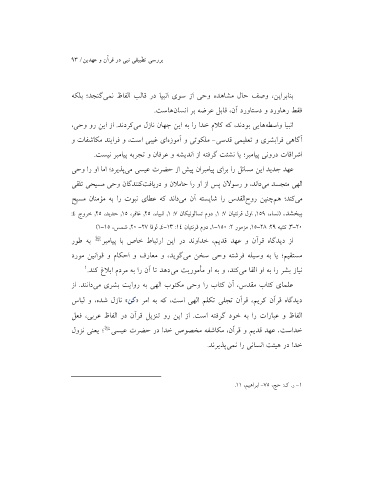 بررسی تطبیقی نبی در قرآن و عهدین / ۹۳
بنابراین، وصف حال مشاهده وحی از سوی انبیا در قالب الفاظ نمی‌گنجد؛ بلکه
فقط رهاورد و دستاورد آن، قابل عرضه بر انسان‌هاست.
انبیا واسطه‌هایی بودند، که کلام خدا را به این جهان نازل می‌کردند. از این رو وحی،
آگاهی فرابشری و تعلیمی قدسی- ملکوتی و آموزه‌ای غیبی است، و فرایند مکاشفات و
اشراقات درونی پیامبر؛ یا نشئت گرفته از اندیشه و عرفان و تجربه پیامبر نیست.
عهد جدید این مسائل را برای پیامبران پیش از حضرت عیسی می‌پذیرد؛ اما او را وحی
الهی متجسد می‌داند، و رسولان پس از او را حاملان و دریافت‌کنندگان وحی مسیحی تلقی
می‌کند؛ هم‌چنین روح‌القدس را شایسته آن می‌داند که عطای نبوت را به مؤمنان مسیح
ببخشد. (نساء، ۱۵۹، اول قرنتیان ۷: ۱، دوم تسالونیکان ۷: ۱، انبیاء، ۲۵، غافر، ۱۵، حدید، ۲۵، خروج ۴:
از دیدگاه قرآن و عهد قدیم، خداوند در این ارتباط خاص با پیامبر به طور
مستقیم؛ یا به وسیله فرشته وحی سخن می‌گوید، و معارف و احکام و قوانین مورد
نیاز بشر را به او القا می‌کند، و به او مأموریت می‌دهد تا آن را به مردم ابلاغ کند.۱
علمای کتاب مقدس، آن کتاب را وحی مکتوب الهی به روایت بشری می‌دانند. از
دیدگاه قرآن کریم، قرآن تجلی تکلم الهی است، که به امر «کن» نازل شده، و لباس
الفاظ و عبارات را به خود گرفته است. از این رو تنزیل قرآن در الفاظ عربی، فعل
خداست. عهد قدیم و قرآن، مکاشفه مخصوص خدا در حضرت عیسی؛ یعنی نزول
خدا در هیئت انسانی را نمی‌پذیرند.
۱- ر. ک: حج، ۷۵- ابراهیم، ۱۱.